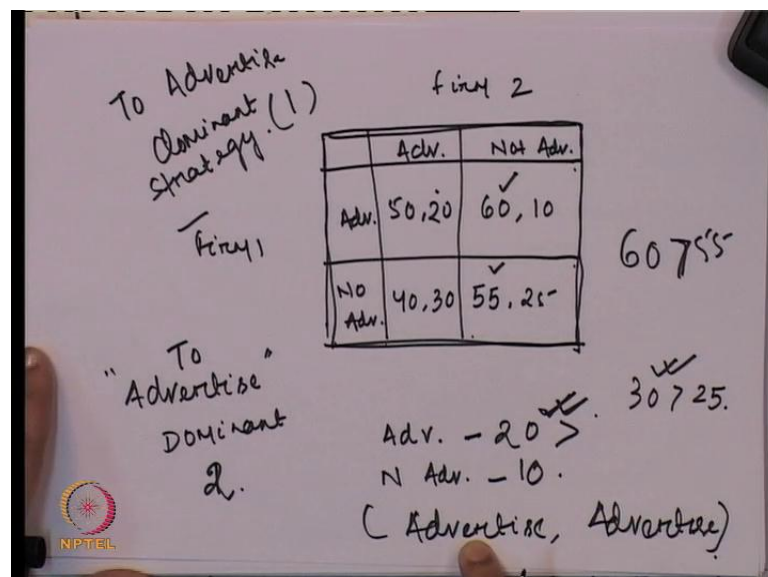 To Advertise
dominant (1)
strategy.
firm 2
Adv. Not Adv.
Firm 1
Adv. 50,20 60,10
No Adv. 40,30 55,25
60>55
"To
Advertise"
DOMINANT
2.
30>25.
Adv. - 20 >
N Adv. - 10.
(Advertise, Advertise)
NPTEL